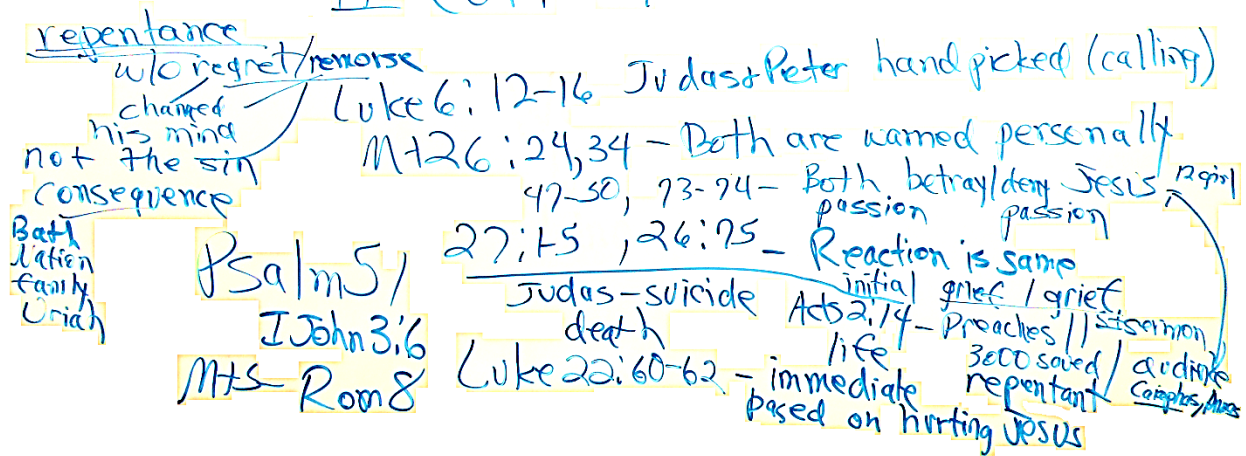 repentance
w/o regret/remorse
changed
his mind
not the sin
consequence
Bath
Nation
family
Uriah
Luke 6:12-16 Judas & Peter hand picked (calling)
Mt 26:24,34 - Both are warned personally
47-50, 73-74 - Both betray/deny Jesis, 12 girl
passion passion
27:1-5, 26:75 - Reaction is same
initial grief / grief
Judas - suicide
death
Acts 2:14 - Preaches 1st sermon
life
3000 saved / audinke
repentant Caiaphas, Annas
Psalm 51
I John 3:6
Mt 5 - Rom 8
Luke 22:60-62 - immediate
based on hurting Jesus